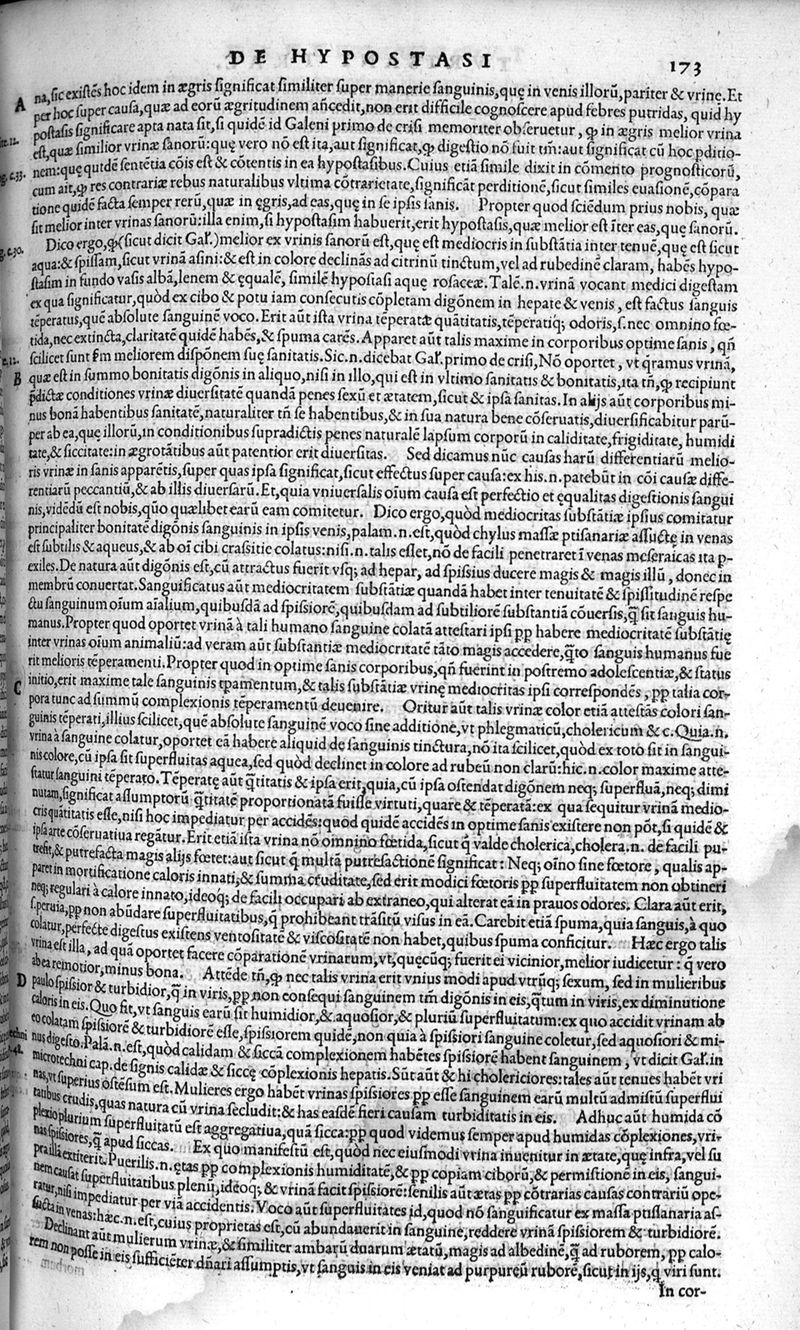 DE HYPOSTASI
173
A
na, sic existẽs hoc idem in ægris significat similiter super manerie sanguinis, quę in venis illorũ, pariter & vrinę. Et
per hoc super causa, quæ ad eorũ ægritudinem añcedit, non erit difficile cognoscere apud febres putridas, quid hy
postasis significare apta nata sit, si quidẽ id Galeni primo de crisi memoriter obseruetur, ꝙ in ægris melior vrina
est, quæ similior vrinæ sanorũ: quę vero nõ est ita, aut significat, ꝙ digestio nõ fuit tm̃: aut significat cũ hoc ꝑditio-
nem: quę quidẽ sentẽtia cõis est & cõtentis in ea hypostasibus. Cuius etiã simile dixit in cõmento prognosticorũ,
cum ait, ꝙ res contrariæ rebus naturalibus vltima cõtrarietate, significãt perditionẽ, sicut similes euasionẽ, cõpara
tione quidẽ facta semper rerũ, quæ in ęgris, ad eas, quę in se ipsis sanis. Propter quod sciẽdum prius nobis, quæ
sit melior inter vrinas sanorũ: illa enim, si hypostasim habuerit, erit hypostasis, quæ melior est ĩter eas, quę sanorũ.
Dico ergo, ꝙ (sicut dicit Gal.) melior ex vrinis sanorũ est, quę est mediocris in substãtia inter tenuẽ, quę est sicut
aqua: & spissam, sicut vrinã asini: & est in colore declinãs ad citrinũ tinctum, vel ad rubedinẽ claram, habẽs hypo-
stasim in fundo vasis albã, lenem & ęqualẽ, similẽ hypostasi aquę rosaceæ. Talẽ.n. vrinã vocant medici digestam
ex qua significatur, quòd ex cibo & potu iam consecutis cõpletam digõnem in hepate & venis, est factus sanguis
tẽperatus, quẽ absolute sanguinẽ voco. Erit aũt ista vrina tẽperatæ quãtitatis, tẽperatiq; odoris, s. nec omnino fœ-
tida, nec extincta, claritatẽ quidẽ habẽs, & spuma carẽs. Apparet aũt talis maxime in corporibus optime sanis, qñ
scilicet sunt ẜm meliorem dispõnem suę sanitatis. Sic.n. dicebat Gal. primo de crisi, Nõ oportet, vt q̃ramus vrinã,
B
quæ est in summo bonitatis digõnis in aliquo, nisi in illo, qui est in vltimo sanitatis & bonitatis, ita tñ, ꝙ recipiunt
p̃dictæ conditiones vrinæ diuersitatẽ quandã penes sexũ et ætatem, sicut & ipsa sanitas. In alijs aũt corporibus mi-
nus bonã habentibus sanitatẽ, naturaliter tñ se habentibus, & in sua natura bene cõseruatis, diuersificabitur parũ-
per ab ea, que illorũ, in conditionibus supradictis penes naturalẽ lapsum corporũ in caliditate, frigiditate, humidi
tate, & siccitate: in ægrotãtibus aũt patentior erit diuersitas. Sed dicamus nũc causas harũ differentiarũ melio-
ris vrinæ in sanis apparẽtis, super quas ipsa significat, sicut effectus super causa: ex his.n. patebũt in cõi causæ diffe-
rentiarũ peccantiũ, & ab illis diuersarũ. Et, quia vniuersalis oĩum causa est perfectio et ęqualitas digestionis sangui
nis, vidẽdũ est nobis, quõ quælibet earũ eam comitetur. Dico ergo, quòd mediocritas substãtiæ ipsius comitatur
principaliter bonitatẽ digõnis sanguinis in ipsis venis, palam.n. est, quòd chylus massæ ptisanariæ assũctę in venas
est subtilis & aqueus, & ab oĩ cibi crassitie colatus: nisi.n. talis esset, nõ de facili penetraret ĩ venas meseraicas ita p-
exiles. De natura aũt digõnis est, cũ attractus fuerit vsq; ad hepar, ad spissius ducere magis & magis illũ, donec in
membrũ conuertat. Sanguificatus aũt mediocritatem substãtiæ quandã habet inter tenuitatẽ & spissitudinẽ respe
ctu sanguinum oĩum aĩalium, quibusdã ad spissiorẽ, quibusdam ad subtiliorẽ substantiã cõuersis, q̃ sit sanguis hu-
manus. Propter quod oportet vrinã à tali humano sanguine colatã attestari ipsi pp habere mediocritatẽ substãtię
inter vrinas oĩum animaliũ: ad veram aũt substantiæ mediocritatẽ tãto magis accedere, q̃to sanguis humanus fue
rit melioris tẽperamenti. Propter quod in optime sanis corporibus, qñ fuerint in postremo adolescentiæ, & status
C
initio, erit maxime tale sanguinis tpamentum, & talis substãtiæ vrinę mediocritas ipsi correspõdẽs, pp talia cor-
pora tunc ad summũ complexionis tẽperamentũ deuenire. Oritur aũt talis vrinæ color etiã attestãs colori san-
guinis tẽperati, illius scilicet, quẽ absolute sanguinẽ voco sine additione, vt phlegmaticũ, cholericum & c. Quia.n.
vrina à sanguine colatur, oportet eã habere aliquid de sanguinis tinctura, nõ ita scilicet, quòd ex toto sit in sangui-
nis colore, cũ ipsa sit superfluitas aquea, sed quòd declinet in colore ad rubeũ non clarũ: hic.n. color maxime atte-
statur sanguini tẽperato. Tẽperatę aũt q̃titatis & ipsa erit, quia, cũ ipsa ostendat digõnem neq; superfluã, neq; dimi
nutam, significat assumptorũ q̃titatẽ proportionatã fuisse virtuti, quare & tẽperatã: ex qua sequitur vrinã medio-
cris quãtitatis esse, nisi hoc impediatur per accidẽs: quod quidẽ accidẽs in optime sanis existere non põt, si quidẽ &
ipsa arte cõseruatiua regãtur. Erit etiã ista vrina nõ omnino fœtida, sicut q̃ valde cholerica, cholera.n. de facili pu-
trescit, & putrefacta magis alijs fœtet: aut sicut q̃ multã putrefactionẽ significat: Neq; oĩno sine fœtore, qualis ap-
paret in mortificatione caloris innati, & summa cruditate, sed erit modici fœtoris pp superfluitatem non obtineri
neq; regulari à calore innato, ideoq; de facili occupari ab extraneo, qui alterat eã in prauos odores. Clara aũt erit,
s. peruia, pp non abũdare superfluitatibus, q̃ prohibeant trãsitũ visus in eã. Carebit etiã spuma, quia sanguis, à quo
colatur, perfecte digestus existens ventositatẽ & viscositatẽ non habet, quibus spuma conficitur. Hæc ergo talis
vrina est illa, ad quã oportet facere cõparationẽ vrinarum, vt, quęcũq; fuerit ei vicinior, melior iudicetur: q̃ vero
ab ea remotior, minus bona. Attẽde tñ, ꝙ nec talis vrina erit vnius modi apud vtrũq; sexum, sed in mulieribus
D
paulo spissior & turbidior, q̃ in viris, pp non consequi sanguinem tm̃ digõnis in eis, q̃tum in viris, ex diminutione
caloris in eis. Quo fit, vt sanguis earũ sit humidior, & aquosior, & pluriũ superfluitatum: ex quo accidit vrinam ab
eo colatam spissiorẽ & turbidiorẽ esse, spissiorem quidẽ, non quia à spissiori sanguine coletur, sed aquosiori & mi-
nus digesto. Palã.n. est, quòd calidam & siccã complexionem habẽtes spissiorẽ habent sanguinem, vt dicit Gal. in
microtechni cap. de signis calidæ & siccę cõplexionis hepatis. Sũt aũt & hi cholericiores: tales aũt tenues habẽt vri
nas, vt superius ostẽsum est. Mulieres ergo habẽt vrinas spissiores pp esse sanguinem earũ multũ admistũ superflui
tatibus crudis, quas natura cũ vrina secludit: & has easdẽ fieri causam turbiditatis in eis. Adhuc aũt humida cõ
plexio plurium superfluitatũ est aggregatiua, quã sicca: pp quod videmus semper apud humidas cõplexiones, vri-
nas spissiores, q̃ apud siccas. Ex quo manifestũ est, quòd nec eiusmodi vrina inuenitur in ætate, quę infra, vel su
pra illã extiterit. Puerilis.n. ętas pp complexionis humiditatẽ, & pp copiam ciborũ, & permistionẽ in eis, sangui-
nem causat superfluitatibus plenũ, ideoq; & vrinã facit spissiorẽ: senilis aũt ætas pp cõtrarias causas contrariũ ope-
ratur, nisi impediatur per viã accidentis. Voco aũt superfluitates id, quod nõ sanguificatur ex massa ptisanaria as-
sũcta in venas: hæc.n. est, cuius proprietas est, cũ abundauerit in sanguine, reddere vrinã spissiorem & turbidiorẽ.
Declinant aũt mulierum vrinæ, & similiter ambarũ duarum ætatũ, magis ad albedinẽ, q̃ ad ruborem, pp calo-
rem non posse in eis sufficiẽter dñari assumptis, vt sanguis in eis veniat ad purpureũ ruborẽ, sicut in ijs, q̃ viri sunt.
In cor-